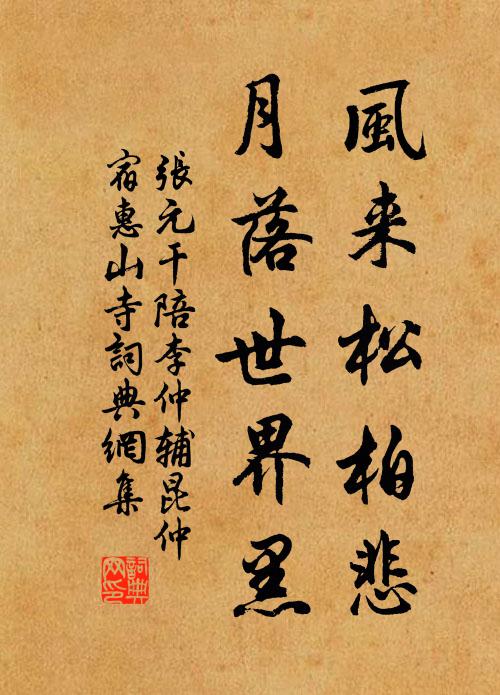 風来松柏悲
月落世界黑
張元干陪李仲辅昆仲
宿惠山寺詞典網集
詞典
网印